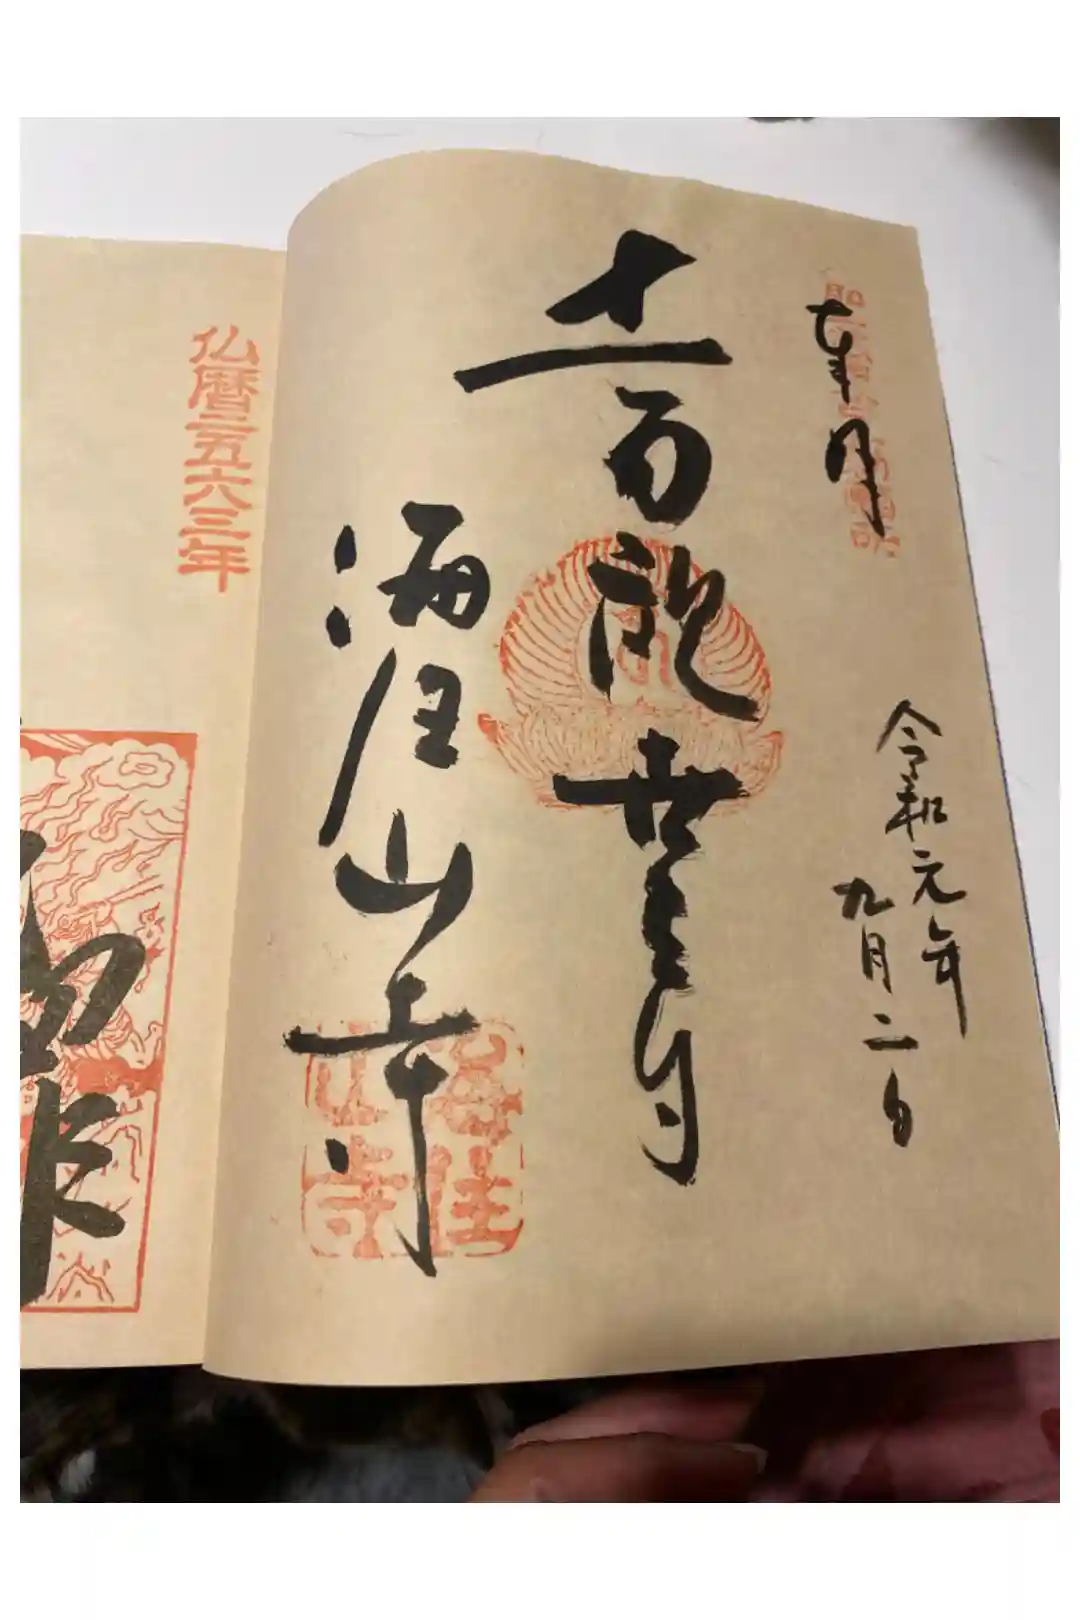 奉拝
令和元年
九月二日
十一面観世音
海住山寺
海住
山寺
仏暦二五六三年